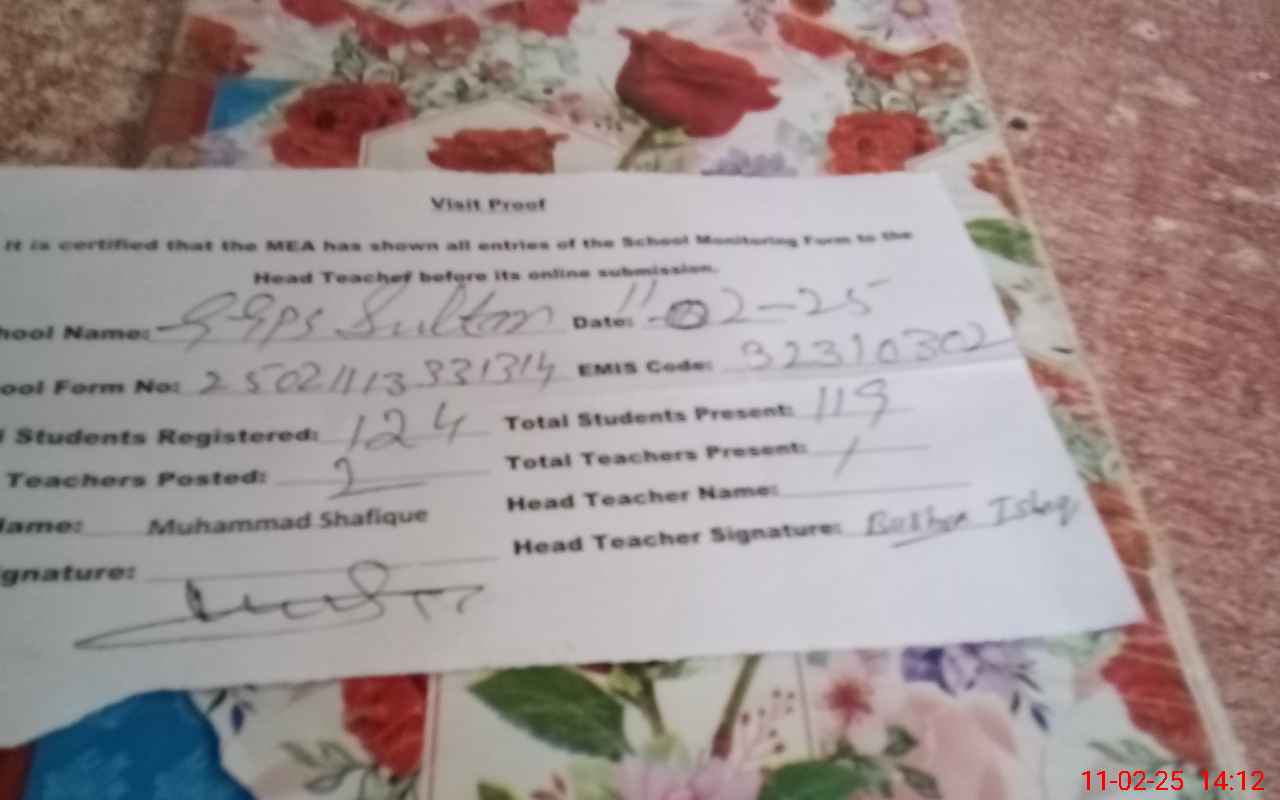 Visit Proof
It is certified that the MEA has shown all entries of the School Monitoring Form to the
Head Teacher before its online submission.
hool Name: GGPS Sultan Date: 11-02-25
ool Form No: 25021113331314 EMIS Code: 32310302
l Students Registered: 124 Total Students Present: 119
Teachers Posted: 2 Total Teachers Present: 1
Name: Muhammad Shafique Head Teacher Name:
ignature: Head Teacher Signature: Bushra Ishaq
11-02-25 14:12